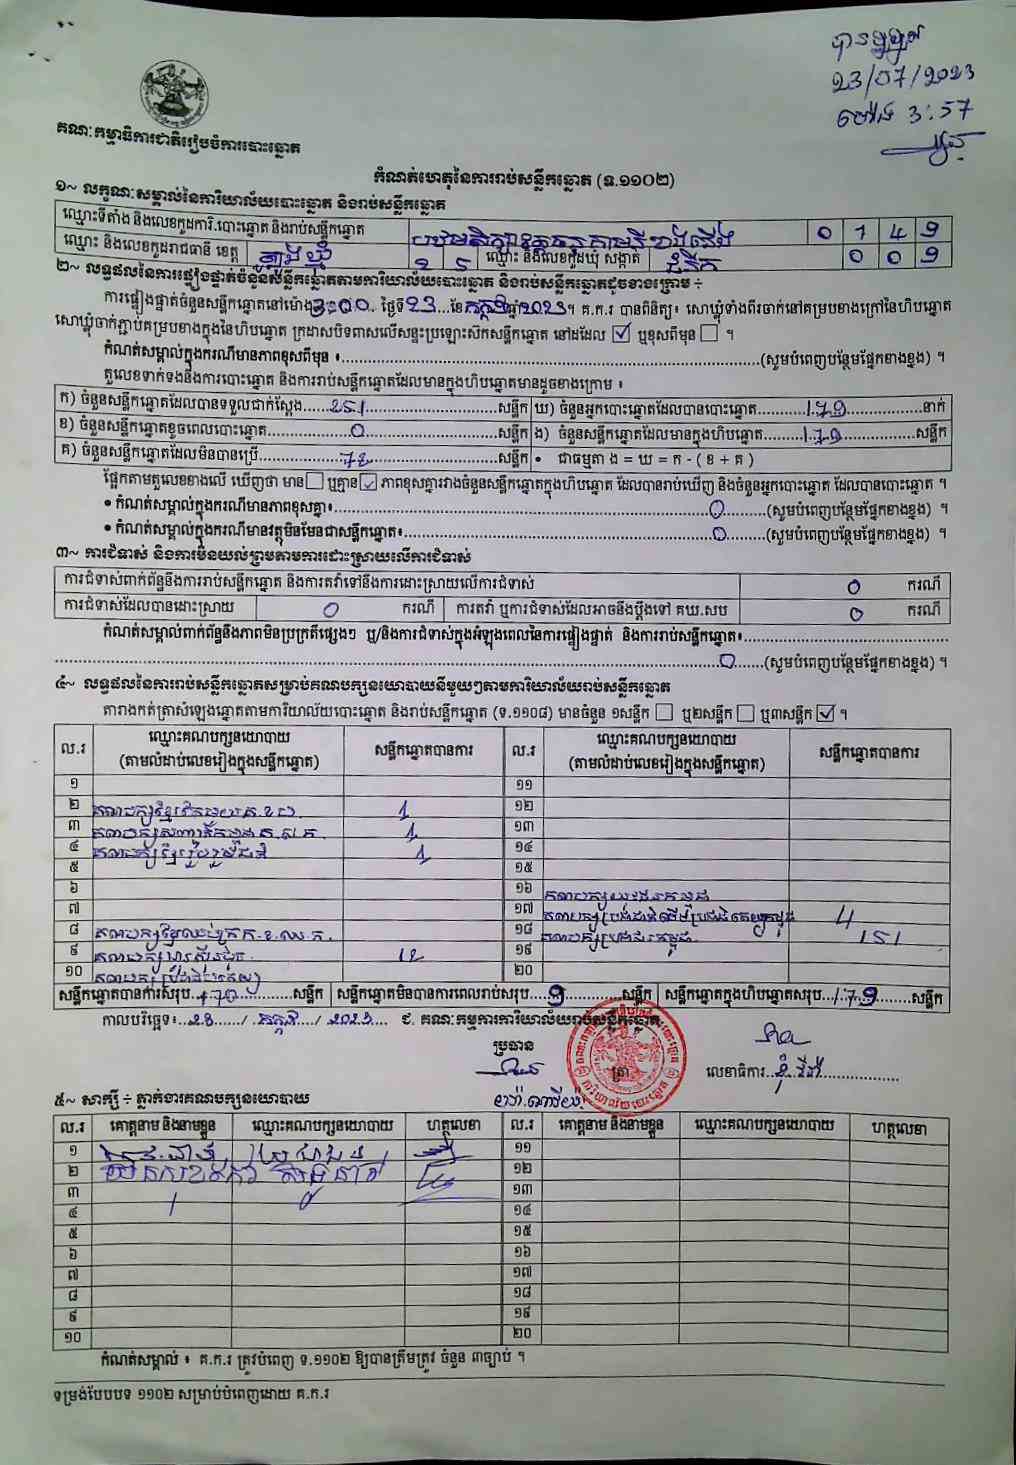 23/07/2023
ម៉ោង 3:57
គណៈកម្មាធិការជាតិរៀបចំការបោះឆ្នោត
កំណត់ហេតុនៃការរាប់សន្លឹកឆ្នោត (ទ.១១០២)
១~ លក្ខណៈសម្គាល់នៃការិយាល័យបោះឆ្នោត និងរាប់សន្លឹកឆ្នោត
ឈ្មោះទីតាំង និងលេខកូដការិ.បោះឆ្នោត និងរាប់សន្លឹកឆ្នោត
ឈ្មោះ និងលេខកូដរាជធានី ខេត្ត ឈ្មោះ និងលេខកូដឃុំ សង្កាត់ 0 0 ១
២~ លទ្ធផលនៃការផ្ទៀងផ្ទាត់ចំនួនសន្លឹកឆ្នោតតាមការិយាល័យបោះឆ្នោត និងរាប់សន្លឹកឆ្នោតដូចខាងក្រោម ÷
ការផ្ទៀងផ្ទាត់ចំនួនសន្លឹកឆ្នោតនៅម៉ោង 3:00 ថ្ងៃទី 23 ខែ កក្កដា ឆ្នាំ 2023 ។ គ.ក.រ បានពិនិត្យ៖ សោឃ្លុំទាំងពីរចាក់នៅគម្របខាងក្រៅនៃហិបឆ្នោត
សោឃ្លុំចាក់ភ្ជាប់គម្របខាងក្នុងនៃហិបឆ្នោត ក្រដាសបិទពាសលើសន្ទះប្រឡោះសិកសន្លឹកឆ្នោត នៅដដែល ☑ ឬខុសពីមុន ☐ ។
កំណត់សម្គាល់ក្នុងករណីមានភាពខុសពីមុន ៖ (សូមបំពេញបន្ថែមផ្នែកខាងខ្នង) ។
តួលេខទាក់ទងនឹងការបោះឆ្នោត និងការរាប់សន្លឹកឆ្នោតដែលមានក្នុងហិបឆ្នោតមានដូចខាងក្រោម ៖
ក) ចំនួនសន្លឹកឆ្នោតដែលបានទទួលជាក់ស្តែង 251 សន្លឹក ឃ) ចំនួនអ្នកបោះឆ្នោតដែលបានបោះឆ្នោត 17១ នាក់
ខ) ចំនួនសន្លឹកឆ្នោតខូចពេលបោះឆ្នោត 0 សន្លឹក ង) ចំនួនសន្លឹកឆ្នោតដែលមានក្នុងហិបឆ្នោត 17១ សន្លឹក
គ) ចំនួនសន្លឹកឆ្នោតដែលមិនបានប្រើ 72 សន្លឹក • ជាធម្មតា ង = ឃ = ក - ( ខ + គ )
ផ្អែកតាមតួលេខខាងលើ ឃើញថា មាន ☐ ឬគ្មាន ☑ ភាពខុសគ្នារវាងចំនួនសន្លឹកឆ្នោតក្នុងហិបឆ្នោត ដែលបានរាប់ឃើញ និងចំនួនអ្នកបោះឆ្នោត ដែលបានបោះឆ្នោត ។
• កំណត់សម្គាល់ក្នុងករណីមានភាពខុសគ្នា៖ 0 (សូមបំពេញបន្ថែមផ្នែកខាងខ្នង) ។
• កំណត់សម្គាល់ក្នុងករណីមានវត្ថុមិនមែនជាសន្លឹកឆ្នោត៖ 0 (សូមបំពេញបន្ថែមផ្នែកខាងខ្នង) ។
៣~ ការជំទាស់ និងការមិនយល់ព្រមតាមការដោះស្រាយលើការជំទាស់
ការជំទាស់ពាក់ព័ន្ធនឹងការរាប់សន្លឹកឆ្នោត និងការតវ៉ាទៅនឹងការដោះស្រាយលើការជំទាស់ 0 ករណី
ការជំទាស់ដែលបានដោះស្រាយ 0 ករណី ការតវ៉ា ឬការជំទាស់ដែលអាចនឹងប្តឹងទៅ គឃ.សប 0 ករណី
កំណត់សម្គាល់ពាក់ព័ន្ធនឹងភាពមិនប្រក្រតីផ្សេងៗ ឬ/និងការជំទាស់ក្នុងអំឡុងពេលនៃការផ្ទៀងផ្ទាត់ និងការរាប់សន្លឹកឆ្នោត៖
0 (សូមបំពេញបន្ថែមផ្នែកខាងខ្នង) ។
៤~ លទ្ធផលនៃការរាប់សន្លឹកឆ្នោតសម្រាប់គណបក្សនយោបាយនីមួយៗតាមការិយាល័យរាប់សន្លឹកឆ្នោត
តារាងកត់ត្រាសំឡេងឆ្នោតតាមការិយាល័យបោះឆ្នោត និងរាប់សន្លឹកឆ្នោត (ទ.១១០៨) មានចំនួន ១សន្លឹក ☐ ឬ២សន្លឹក ☐ ឬ៣សន្លឹក ☑ ។
ល.រ ឈ្មោះគណបក្សនយោបាយ (តាមលំដាប់លេខរៀងក្នុងសន្លឹកឆ្នោត) សន្លឹកឆ្នោតបានការ ល.រ ឈ្មោះគណបក្សនយោបាយ (តាមលំដាប់លេខរៀងក្នុងសន្លឹកឆ្នោត) សន្លឹកឆ្នោតបានការ
១ ១១
២ 1 ១២
៣ 1 ១៣
៤ 1 ១៤
៥ ១៥
៦ ១៦
៧ ១៧ 4
៨ ១៨ 151
៩ 12 ១៩
១០ ២០
សន្លឹកឆ្នោតបានការសរុប 170 សន្លឹក សន្លឹកឆ្នោតមិនបានការពេលរាប់សរុប ១ សន្លឹក សន្លឹកឆ្នោតក្នុងហិបឆ្នោតសរុប 17១ សន្លឹក
កាលបរិច្ឆេទ៖ 23 / កក្កដា / 2023 ជ. គណៈកម្មការការិយាល័យរាប់សន្លឹកឆ្នោត
ប្រធាន ត្រា លេខាធិការ
៥~ សាក្សី ÷ ភ្នាក់ងារគណបក្សនយោបាយ
ល.រ គោត្តនាម និងនាមខ្លួន ឈ្មោះគណបក្សនយោបាយ ហត្ថលេខា ល.រ គោត្តនាម និងនាមខ្លួន ឈ្មោះគណបក្សនយោបាយ ហត្ថលេខា
១ ១១
២ ១២
៣ ១៣
៤ ១៤
៥ ១៥
៦ ១៦
៧ ១៧
៨ ១៨
៩ ១៩
១០ ២០
កំណត់សម្គាល់ ៖ គ.ក.រ ត្រូវបំពេញ ទ.១១០២ ឱ្យបានត្រឹមត្រូវ ចំនួន ៣ច្បាប់ ។
ទម្រង់បែបបទ ១១០២ សម្រាប់បំពេញដោយ គ.ក.រ